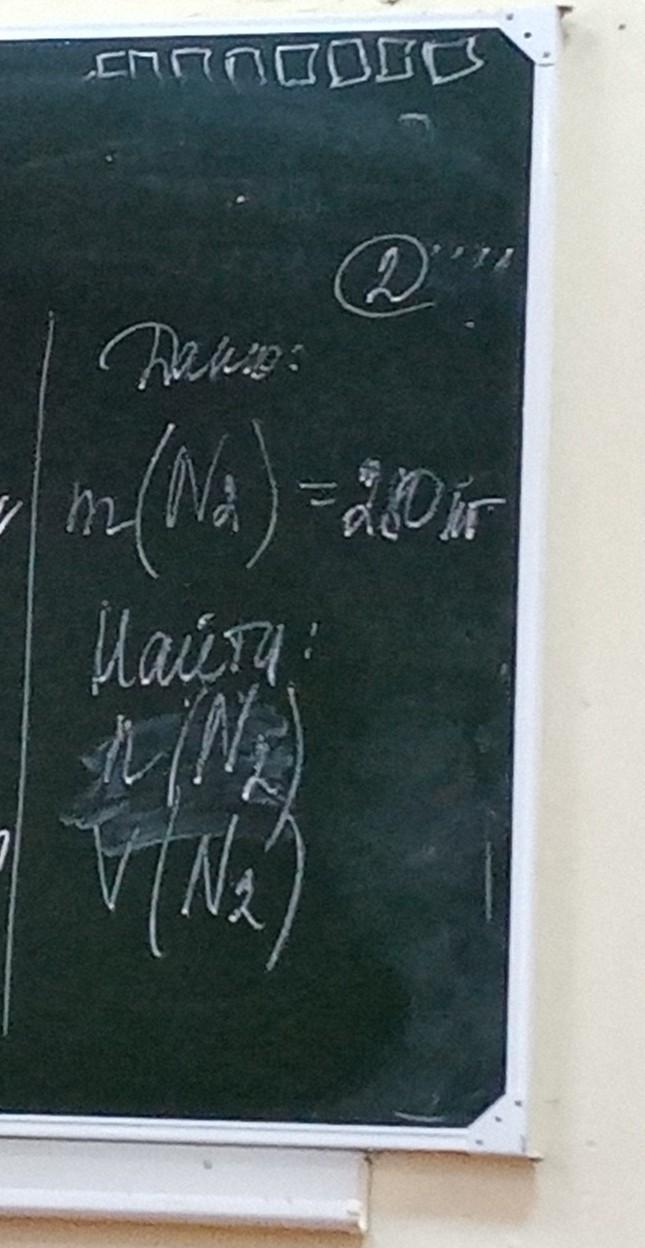 2
Дано:
m(N₂) = 280 
Найти:
n(N₂)
V(N₂)